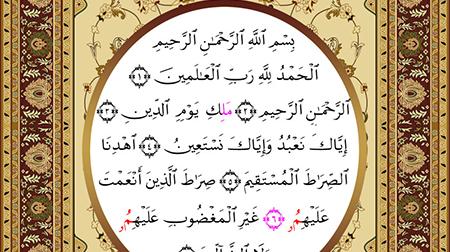 بِسْمِ ٱللَّهِ ٱلرَّحْمَٰنِ ٱلرَّحِيمِ
ٱلْحَمْدُ لِلَّهِ رَبِّ ٱلْعَٰلَمِينَ ﴿١﴾
ٱلرَّحْمَٰنِ ٱلرَّحِيمِ ﴿٢﴾ مَلِكِ يَوْمِ ٱلدِّينِ ﴿٣﴾
إِيَّاكَ نَعْبُدُ وَإِيَّاكَ نَسْتَعِينُ ﴿٤﴾ ٱهْدِنَا
ٱلصِّرَٰطَ ٱلْمُسْتَقِيمَ ﴿٥﴾ صِرَٰطَ ٱلَّذِينَ أَنْعَمْتَ
عَلَيْهِمُۥ ﴿٦﴾ غَيْرِ ٱلْمَغْضُوبِ عَلَيْهِمُۥ